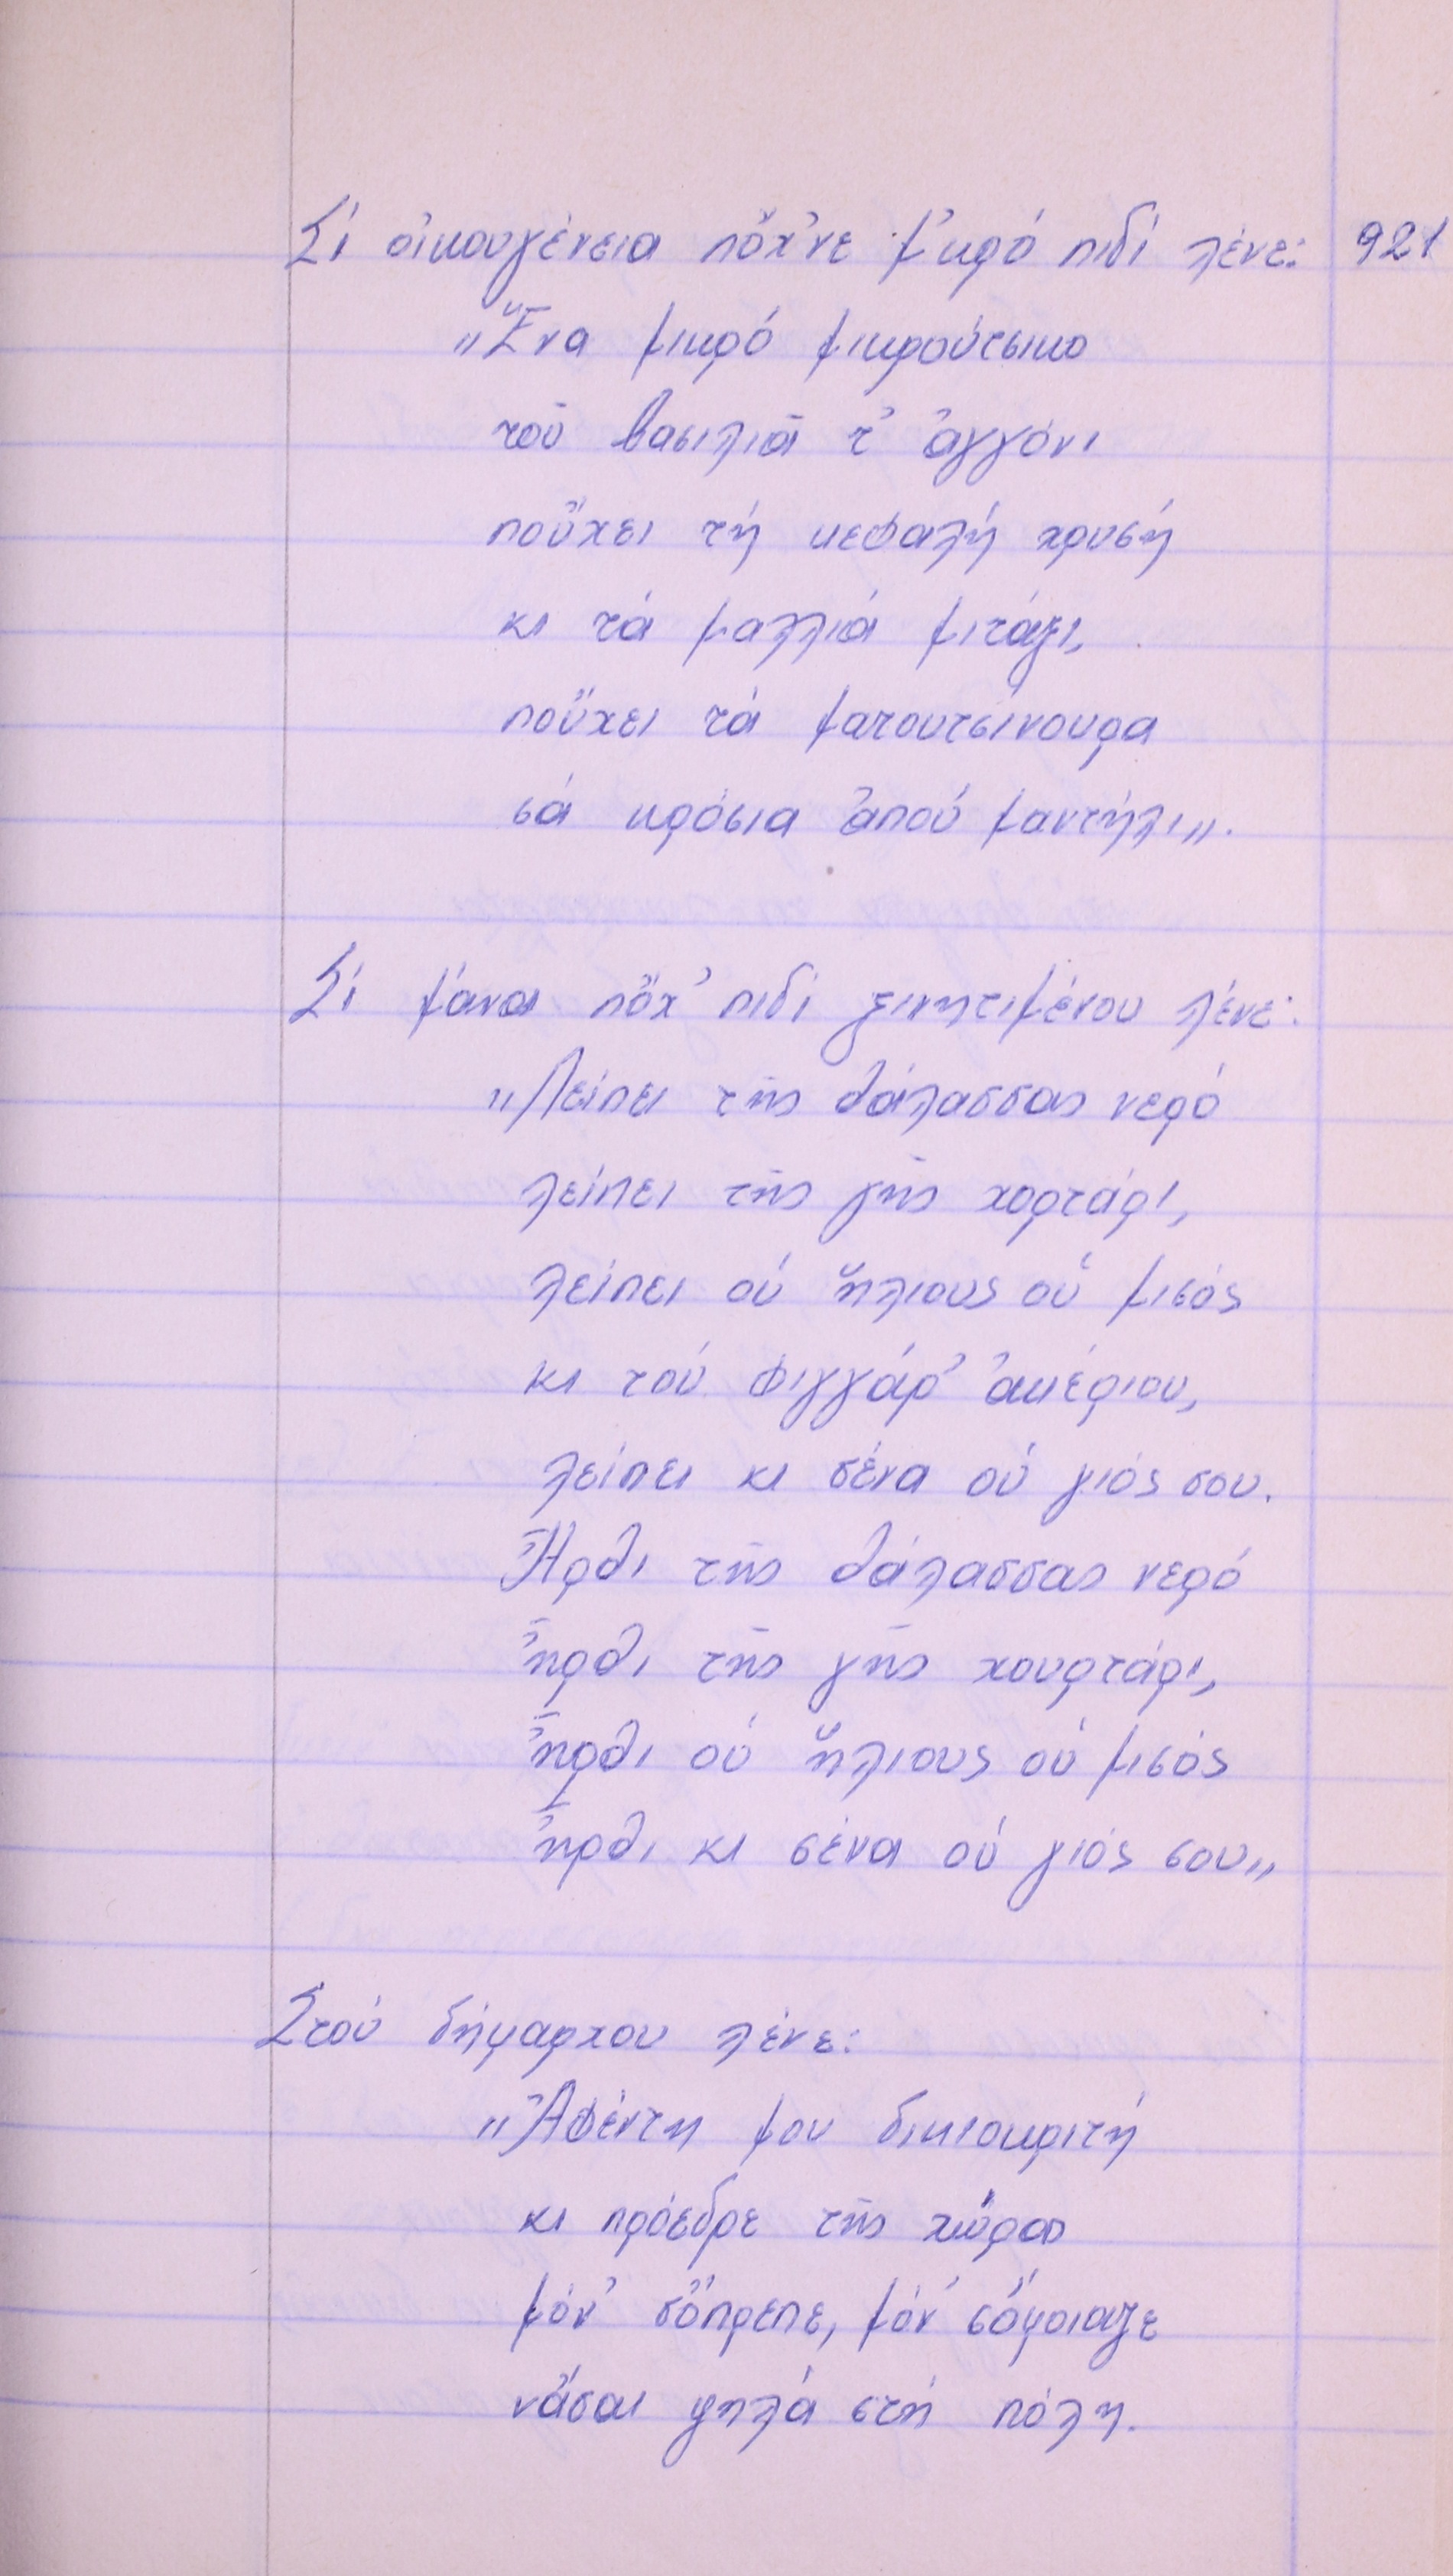 Σί οἰκουγένεια πὄχ'νε μ'κρό πιδί λένε: 921
"Ἕνα μικρό μικρούτσικο
τοῦ βασιλιᾶ τ' ἀγγόνι
ποὔχει τή κεφαλή χρυσή
κι τά μαλλιά μιτάξι,
ποὔχει τά ματουτσίνουρα
σά κρόσια ἀπού μαντήλι".
Σί μάνα πὄχ' πιδί ξινητιμένου λένε:
"Λείπει τῆς θάλασσας νερό
λείπει τῆς γῆς χορτάρι,
λείπει οὑ ἥλιους οὑ μισός
κι τού φιγγάρ' ἀκέριου,
λείπει κι σένα οὑ γιός σου.
Ἦρθι τῆς θάλασσας νερό
ἦρθι τῆς γῆς χουρτάρι,
ἦρθι οὑ ἥλιους οὑ μισός
ἦρθι κι σένα οὑ γιός σου"
Στού δήμαρχου λένε:
"Ἀφέντη μου δικιοκριτή
κι πρόεδρε τῆς χώρας
μόν' σὄπρεπε, μόν' σὄμοιαζε
νἄσαι ψηλά στή πόλη.